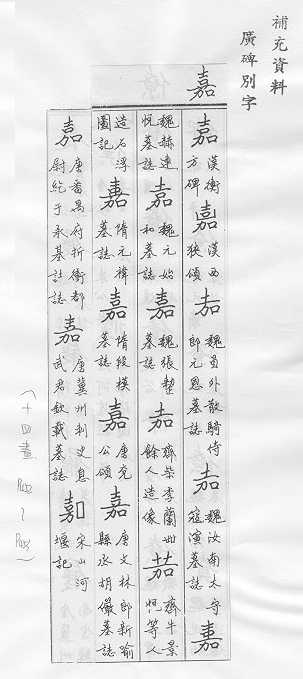 補充資料
廣碑別字
嘉
嘉 漢衡方碑 嘉 漢西狹頌 𠮷 魏員外散騎侍郎元恩墓誌 𠮷 魏汝南太守寇演墓誌 嘉
魏赫連悅墓誌 嘉 魏元始和墓誌 嘉 魏張整墓誌 𠮷 齊柴季蘭卌餘人造像 嘉 齊牛景悅等人
造石浮圖記 嘉 隋元禕墓誌 嘉 隋段模墓誌 嘉 唐兗公頌 嘉 唐文林郎新喻縣丞胡儼墓誌
嘉 唐番禺府折衝都尉紇于永基誌 嘉 唐冀州刺史息武君欽載墓誌 嘉 宋山河堰記
(十四畫